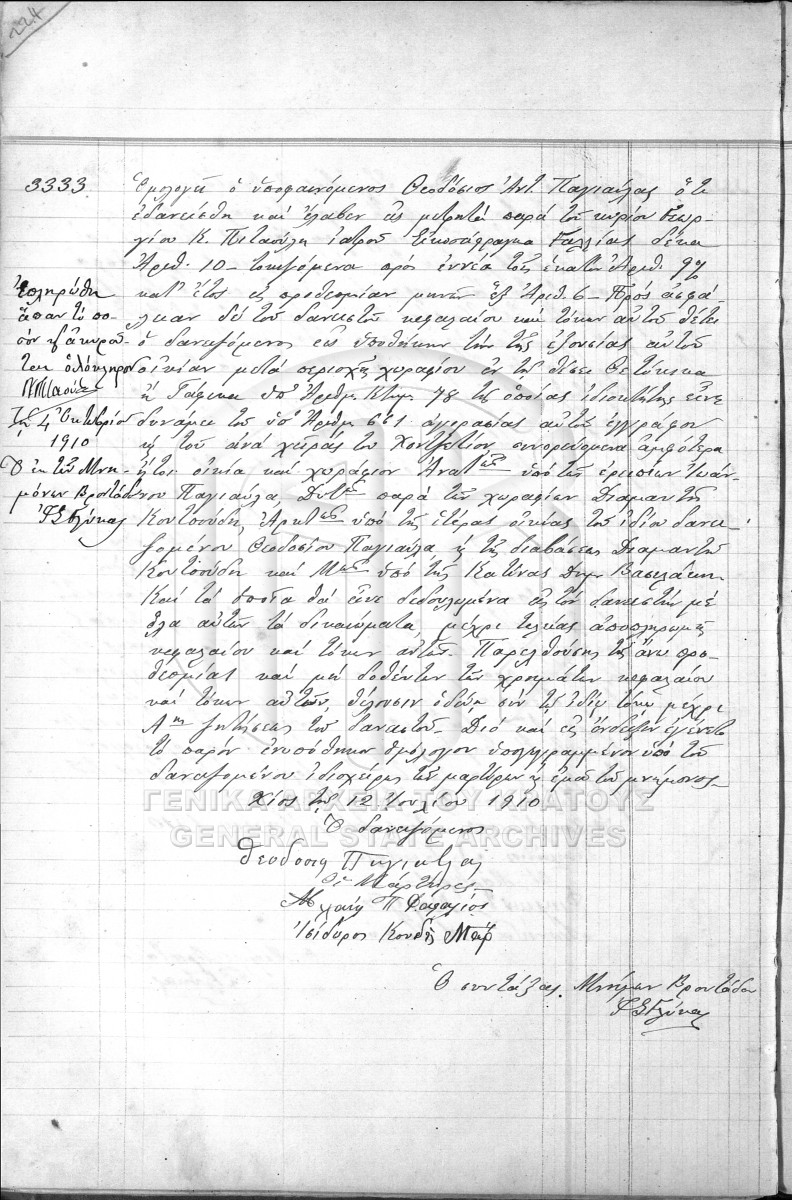 224
3333
Ὁμολογεῖ ὁ ὑποφαινόμενος Θεοδόσιος Ἀντ Παγιαύλας ὅτι
ἐδανείσθη καὶ ἔλαβεν εἰς μετρητὰ παρὰ τοῦ κυρίου Γεωρ-
γίου Κ. Πιταούλη ἰατροῦ Εἰκοσάφραγκα Γαλλίας δέκα
Ἀριθ. 10 – τοκιζόμενα πρὸς ἐννέα τοῖς ἑκατὸν Ἀριθ. 9%
κατ' ἔτος εἰς προθεσμίαν μηνῶν ἓξ Ἀριθ. 6 – Πρὸς ἀσφά-
λειαν δὲ τοῦ δανειστοῦ κεφαλαίου καὶ τόκων αὐτοῦ θέτει
ὁ δανειζόμενος εἰς ὑποθήκην τὴν τῆς ἐξουσίας αὐτοῦ
οἰκίαν μετὰ περιοχῆς χωραφίου ἐν τῇ θέσει
ἢ Ἀριθμ. Κτημ. 78 τῆς ὁποίας ἰδιοκτήτης εἶνε
δυνάμει τοῦ ὑπ' Ἀριθμ. 661 ἀγορασίας αὐτοῦ ἐγγράφου
ᾗ τοῦ ἀνὰ χεῖρας του Χοντζετίου, συνορεύομενα ἀμφότερα
ἤτοι οἰκία καὶ χωράφιον Ἀνατ<sup>κῶς</sup> ὑπὸ τῆς Ἰωάν-
νου Παγιαύλα Δυτ<sup>κῶς</sup> παρὰ τῶν χωραφίων Διαμαντῆ
Κουτσούδη, Ἀρκτ<sup>κῶς</sup> ὑπὸ τῆς ἑτέρας οἰκίας τοῦ ἰδίου δανει-
ζομένου Θεοδοσίου Παγιαύλα, ᾗ τῆς διαβάσεως Διαμαντῆ
Κουτσούδη καὶ Μ<sup>κῶς</sup> ὑπὸ τῆς Κατίνας Δημ. Βασιλάκη
Καὶ τὰ ὁποῖα θὰ εἶνε δεδουλωμένα εἰς τὸν δανειστὴν μὲ
ὅλα αὐτῶν τὰ δικαιώματα, μέχρι τελείας ἀποπληρωμῆς
κεφαλαίου καὶ τόκων αὐτοῦ. Παρελθούσης τῆς ἄνω προ-
θεσμίας καὶ μὴ δοθέντων τῶν χρημάτων κεφαλαίου
καὶ τόκων αὐτῶν, θέλουσιν σὺν τῷ ἰδίῳ τόκῳ μέχρι
Α<sup>ης</sup> ζητήσεως τοῦ δανειστοῦ. Διὸ καὶ εἰς ἔνδειξιν ἐγένετο
τὸ παρὸν ἐνυπόθηκον ὁμόλογον ὑπογεγραμμένον ὑπὸ τοῦ
δανειζομένου ἰδιοχείρως τῶν μαρτύρων ᾗ ἐμοῦ τοῦ μνήμονος –
Χίος τῇ 12 Ἰουλίου 1910
Ὁ δανειζόμενος
Θεοδοσης Παγιαυλας
Οἱ Μάρτυρες –
Π Φαφαλιός
Ἰσίδωρος Κουδῆς
Ὁ συντάξας Μνήμων Βροντάδου
ΦΣ Γλύκας
Ἐπληρώθη
ἅπαν τὸ πο-
σὸν ᾗ ἀκυροῦ-
ται ὁλόκληρον
Τῇ 4 Ὀκτωβρίου
1910
Ὁ ἐκ τῶν Μνη-
μόνων Βροντάδου
ΦΣ Γλύκας
ΓΕΝΙΚΑ ΑΡΧΕΙΑ ΤΟΥ ΚΡΑΤΟΥΣ
GENERAL STATE ARCHIVES